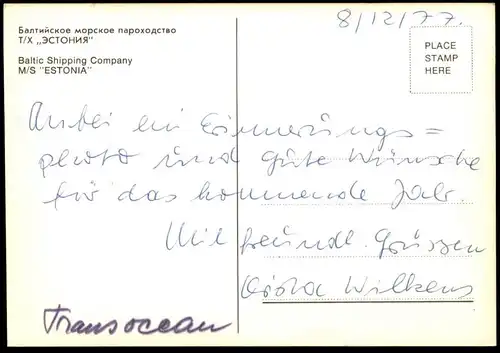 Балтийское морское пароходство
Т/Х „ЭСТОНИЯ"
Baltic Shipping Company
M/S "ESTONIA"
8/12/77.
PLACE
STAMP
HERE
Anbei ein Erinnerungs=
photo und gute Wünsche
für das kommende Jahr.
Mit freundl. Grüssen
Wilkens
Transocean